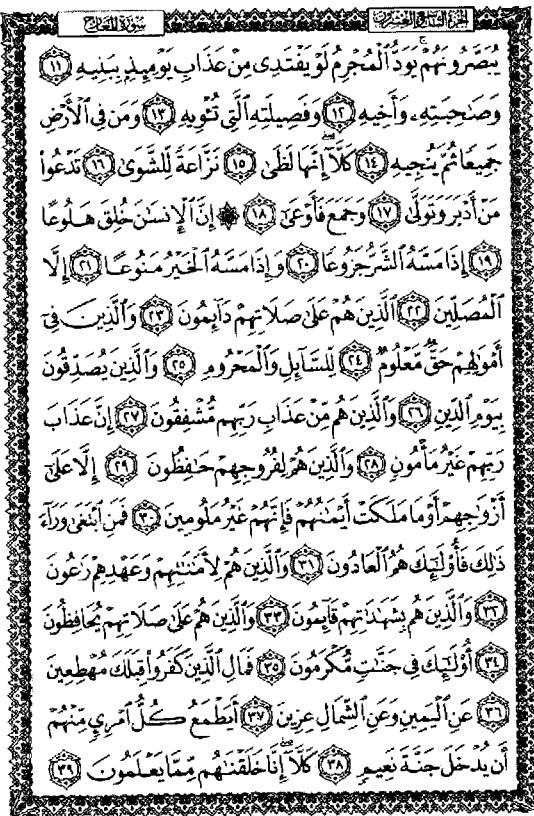 الجزء التاسع والعشرون سورة المعارج
يُبَصَّرُونَهُمْ يَوَدُّ ٱلْمُجْرِمُ لَوْ يَفْتَدِى مِنْ عَذَابِ يَوْمِئِذٍۭ بِبَنِيهِ ١١
وَصَٰحِبَتِهِۦ وَأَخِيهِ ١٢ وَفَصِيلَتِهِ ٱلَّتِى تُـْٔوِيهِ ١٣ وَمَن فِى ٱلْأَرْضِ
جَمِيعًا ثُمَّ يُنجِيهِ ١٤ كَلَّآ إِنَّهَا لَظَىٰ ١٥ نَزَّاعَةً لِّلشَّوَىٰ ١٦ تَدْعُوا۟
مَنْ أَدْبَرَ وَتَوَلَّىٰ ١٧ وَجَمَعَ فَأَوْعَىٰٓ ١٨ ۞ إِنَّ ٱلْإِنسَٰنَ خُلِقَ هَلُوعًا
١٩ إِذَا مَسَّهُ ٱلشَّرُّ جَزُوعًا ٢٠ وَإِذَا مَسَّهُ ٱلْخَيْرُ مَنُوعًا ٢١ إِلَّا
ٱلْمُصَلِّينَ ٢٢ ٱلَّذِينَ هُمْ عَلَىٰ صَلَاتِهِمْ دَآئِمُونَ ٢٣ وَٱلَّذِينَ فِىٓ
أَمْوَٰلِهِمْ حَقٌّ مَّعْلُومٌ ٢٤ لِّلسَّآئِلِ وَٱلْمَحْرُومِ ٢٥ وَٱلَّذِينَ يُصَدِّقُونَ
بِيَوْمِ ٱلدِّينِ ٢٦ وَٱلَّذِينَ هُم مِّنْ عَذَابِ رَبِّهِم مُّشْفِقُونَ ٢٧ إِنَّ عَذَابَ
رَبِّهِمْ غَيْرُ مَأْمُونٍ ٢٨ وَٱلَّذِينَ هُمْ لِفُرُوجِهِمْ حَٰفِظُونَ ٢٩ إِلَّا عَلَىٰٓ
أَزْوَٰجِهِمْ أَوْ مَا مَلَكَتْ أَيْمَٰنُهُمْ فَإِنَّهُمْ غَيْرُ مَلُومِينَ ٣٠ فَمَنِ ٱبْتَغَىٰ وَرَآءَ
ذَٰلِكَ فَأُو۟لَٰٓئِكَ هُمُ ٱلْعَادُونَ ٣١ وَٱلَّذِينَ هُمْ لِأَمَٰنَٰتِهِمْ وَعَهْدِهِمْ رَٰعُونَ
٣٢ وَٱلَّذِينَ هُم بِشَهَٰدَٰتِهِمْ قَآئِمُونَ ٣٣ وَٱلَّذِينَ هُمْ عَلَىٰ صَلَاتِهِمْ يُحَافِظُونَ
٣٤ أُو۟لَٰٓئِكَ فِى جَنَّٰتٍ مُّكْرَمُونَ ٣٥ فَمَالِ ٱلَّذِينَ كَفَرُوا۟ قِبَلَكَ مُهْطِعِينَ
٣٦ عَنِ ٱلْيَمِينِ وَعَنِ ٱلشِّمَالِ عِزِينَ ٣٧ أَيَطْمَعُ كُلُّ ٱمْرِئٍ مِّنْهُمْ
أَن يُدْخَلَ جَنَّةَ نَعِيمٍ ٣٨ كَلَّآ إِنَّا خَلَقْنَٰهُم مِّمَّا يَعْلَمُونَ ٣٩